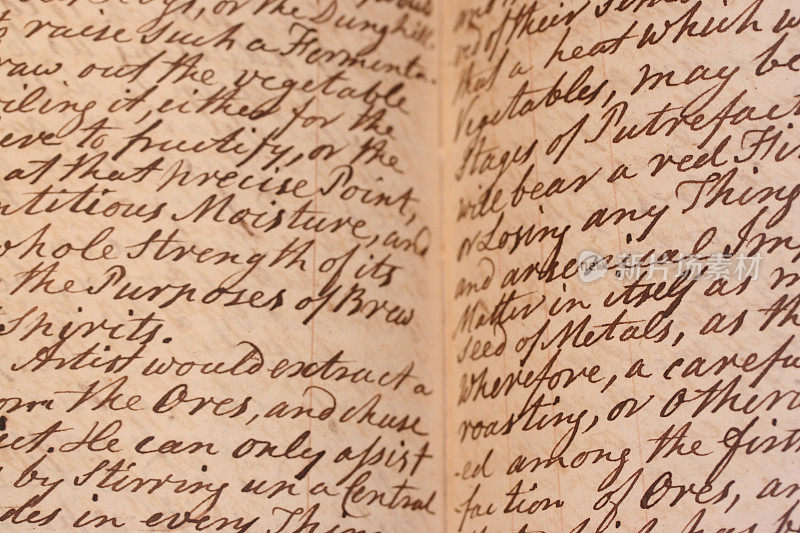 or the Dunghill.
raise such a Formenta-
raw out the vegetable
iling it, either for the
ere to fructify, or the
at that precise Point,
ntitious Moisture, and
whole Strength of its
the Purposes of Brew
Spirits.
Artist would extract a
om the Ores, and chuse
ect. He can only assist
by Stirring up a Central
des in every Thing
of their
that a heat which w
Vegetables, may be
Stages of Putrefact
will bear a red
or Losing any Thing
and arsenical. Im
Matter in itself as
Seed of Metals, as th
Wherefore, a carefu
roasting, or otherw
-ed among the first
faction of Ores, an
has b
new 新片场素材